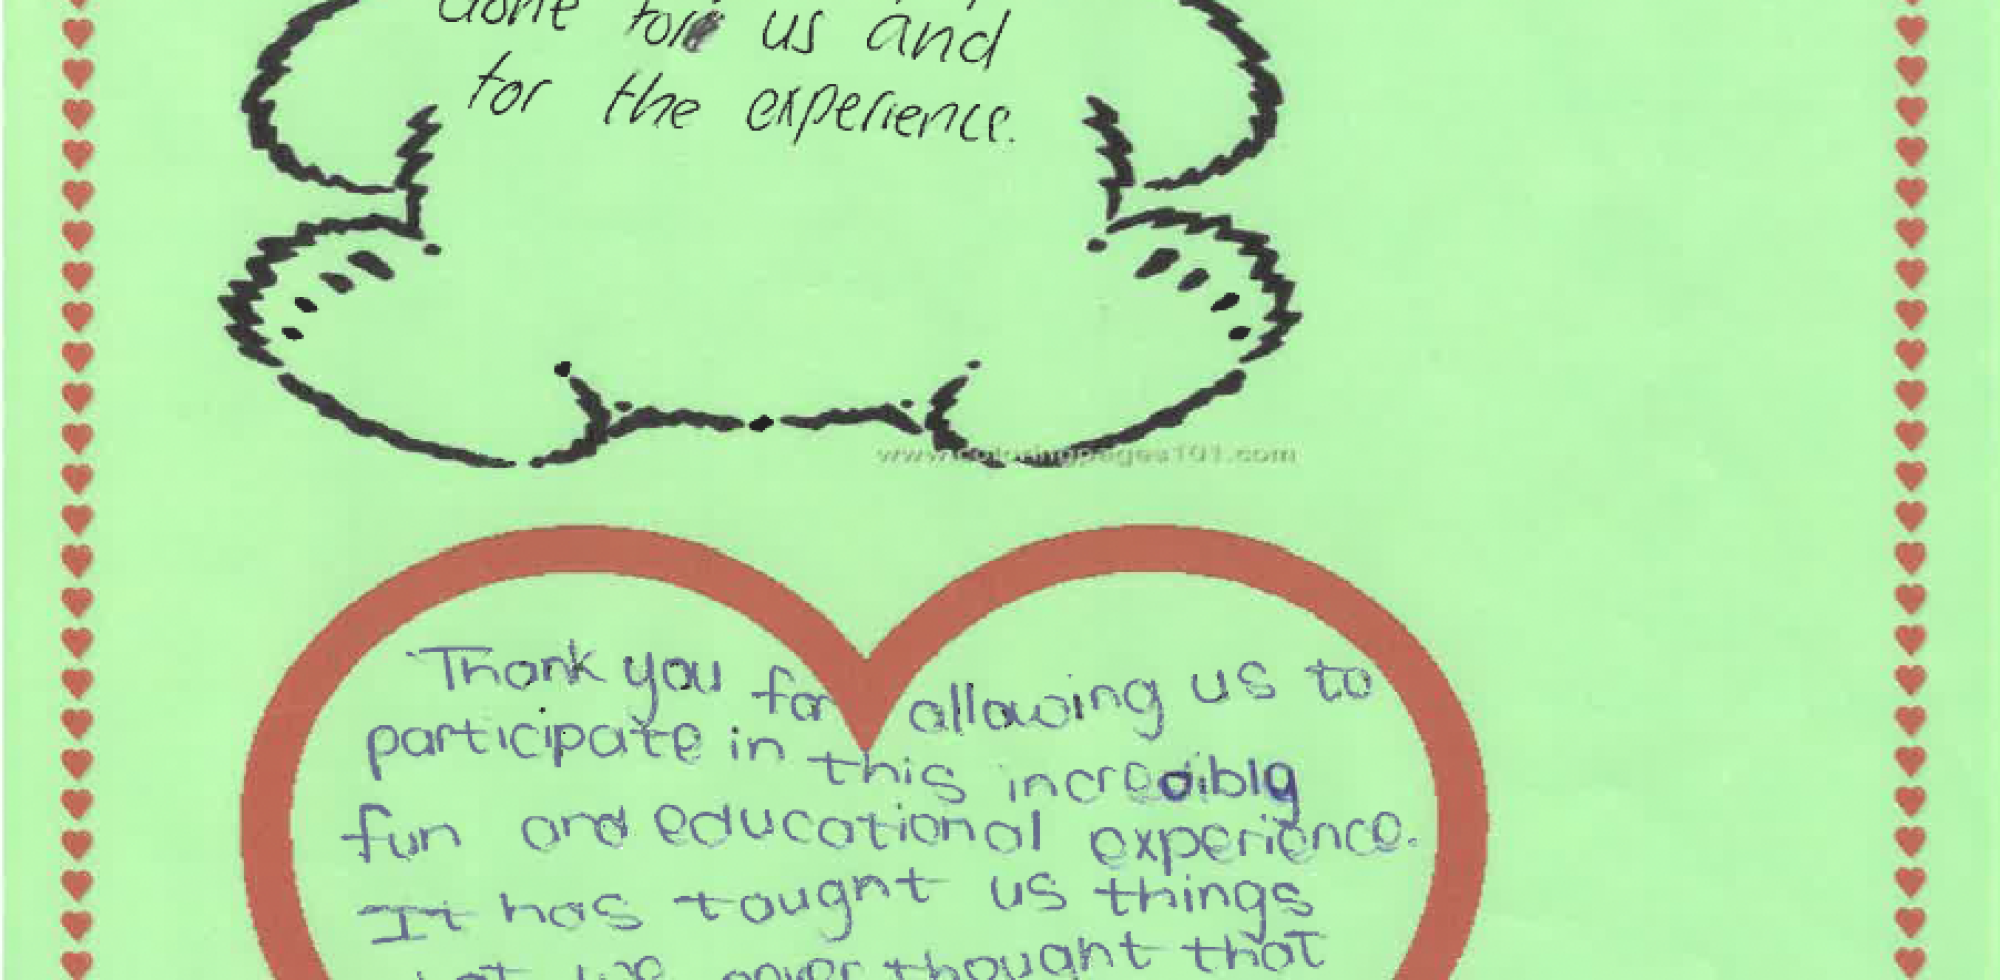 done for us and
for the experience.
www.coloringpages101.com
Thank you for allowing us to
participate in this incredibly
fun and educational experience.
It has taught us things
that we never thought that